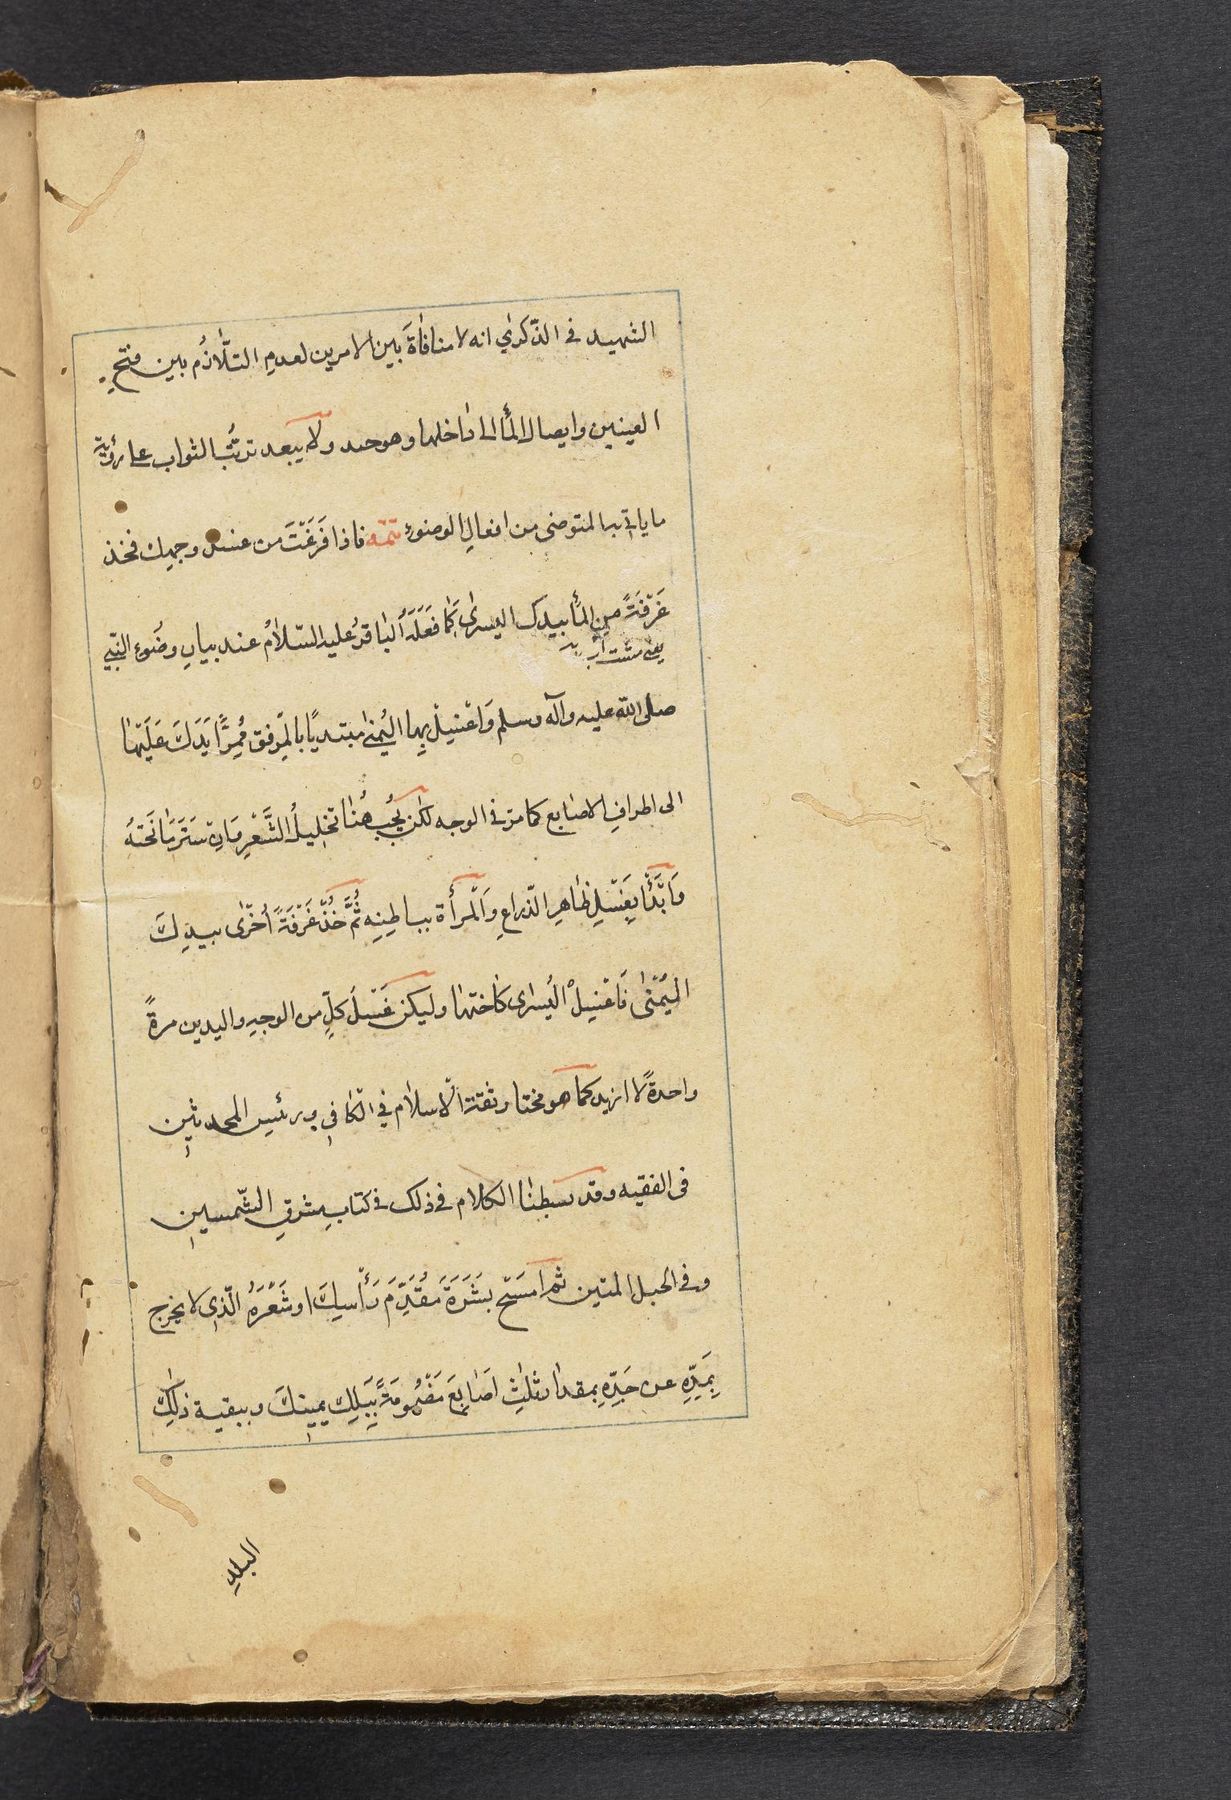 الشهيد في الذّكرٰي انه لا منافٰاةَ بَين الامرين لعدمِ التلّازُم بين فتحِ
العينين وايصال المٰأ الى دٰاخلها وهو حسد ولا يبعد ترتُّب الثواب على رؤية
ما يأتي به المتوضى من افعالِ الوضوءِ تتمّه فاذا فَرَغْتَ من غسل وجهك فخذ
غَرْفَةً مِن المٰأ بيدك اليسرىٰ كَمٰا فعَلَهُ البٰاقرُ عليه السّلٰامُ عند بيانِ وضُوءِ النّبي
يعنى مشت آب
صلى الله عليه وآله وسلم وَاغْسِلْ بِها اليُمنىٰ مبتديًا بالمِرفق مُمِرًّا يَدَكَ عَلَيْهٰا
الى اطرافِ الاصٰابع كما مرّ في الوجه لكن يَجُب هُنٰا تخليلُ الشَّعْرِ وَاِن سَتَر مٰا تَحْتَهُ
وَابْدَأْ بِغَسْلِ ظٰاهِرِ الذّراعِ وَالْمرأة بباطِنِهِ ثُمَّ خُذْ غَرْفَةً اُخْرٰى بيدِكَ
اليُمْنٰى فَاغْسِلْ اليُسرٰى كاُختهٰا وليكن غَسْلُ كلٍّ من الوجهِ واليدين مرةً
واحدةً لا ازيد كما هو مختار ثقة الاسلام في الكٰافي ورئيس المحدثين
في الفقيه وقد بسطنٰا الكلام في ذلك في كتاب مشرقِ الشّمسين
وفي الحبل المتين ثم امسَحْ بَشَرَةَ مُقَدّمِ رَأْسِكَ او شَعْرَهُ الّذى لا يخرج
بِمَدِّهِ عن حَدِّهِ بمقدار ثلٰثِ اَصٰابِعَ مَضْمُومَةً بِبَلَلِ يمينِكَ وببقية ذٰلِكَ
البلل